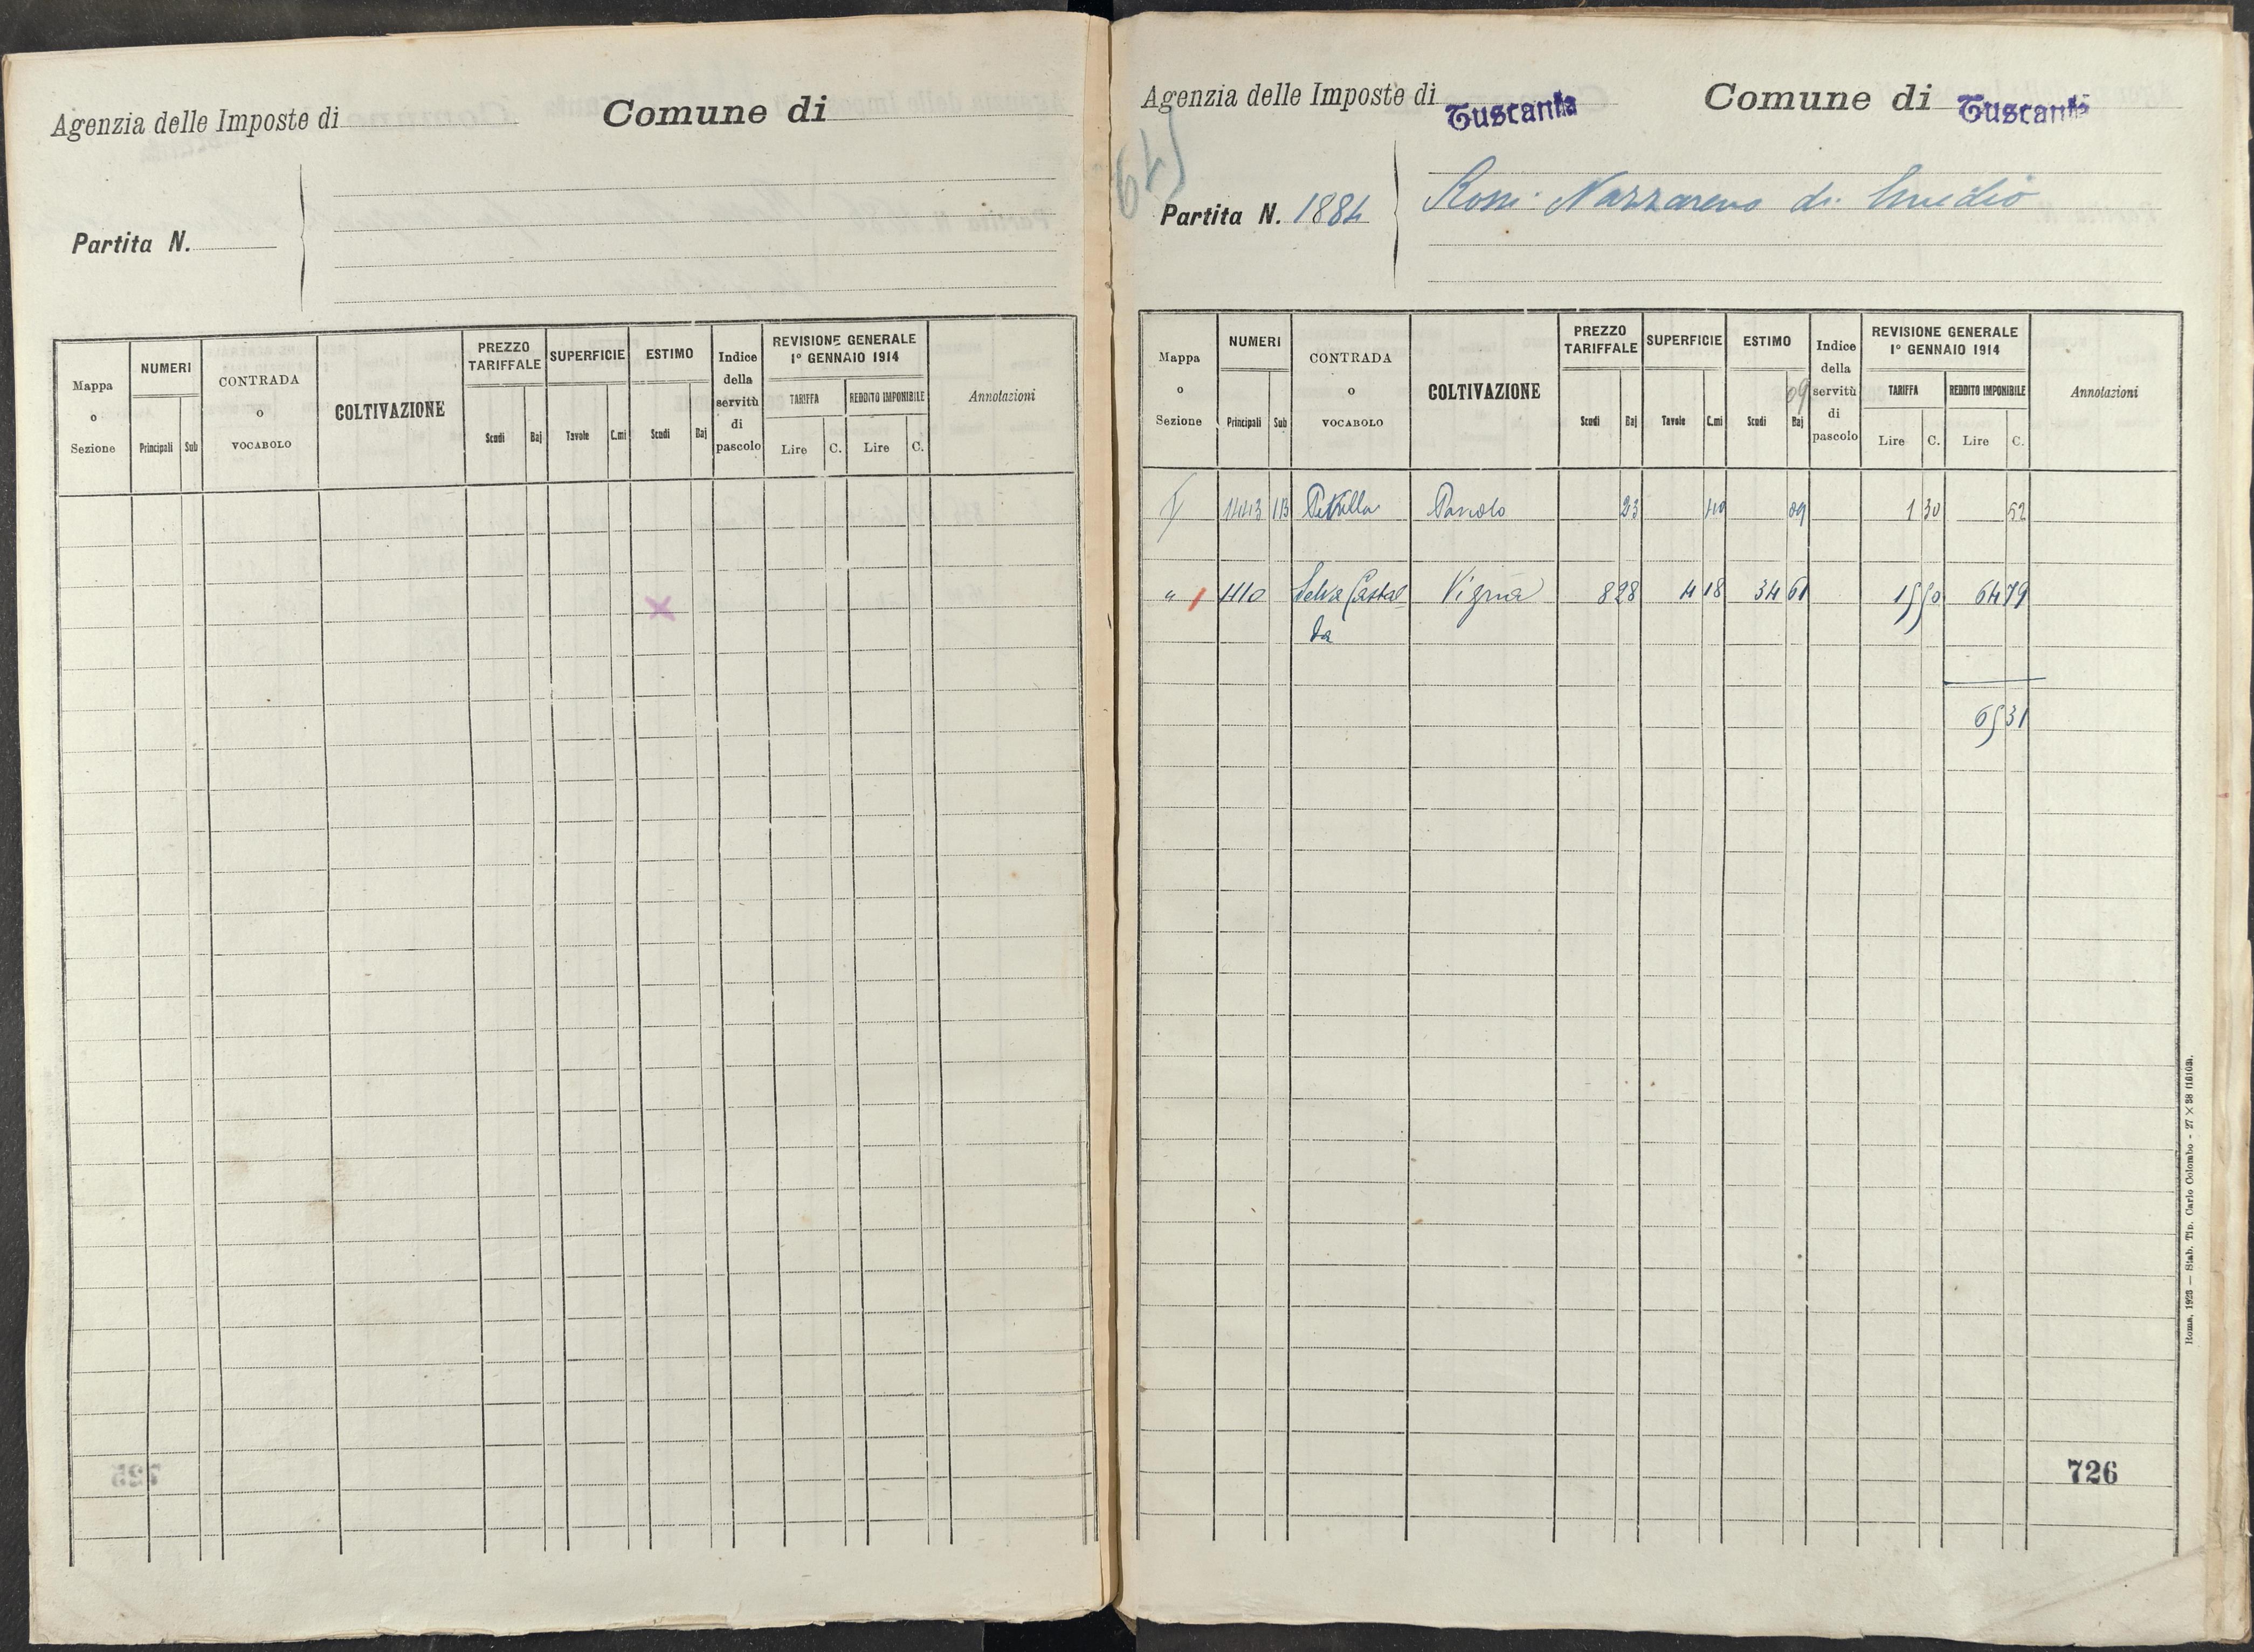 Agenzia delle Imposte di
Comune di
Partita N.
Mappa o Sezione
NUMERI
Principali Sub
CONTRADA o VOCABOLO
COLTIVAZIONE
PREZZO TARIFFALE
Scudi Baj
SUPERFICIE
Tavole C.mi
ESTIMO
Scudi Baj
Indice della servitù di pascolo
REVISIONE GENERALE 1° GENNAIO 1914
TARIFFA
Lire C.
REDDITO IMPONIBILE
Lire C.
Annotazioni
725
Agenzia delle Imposte di Tuscania
Comune di Tuscania
645
Partita N. 1884
Rossi Nazzareno di Emidio
Mappa o Sezione
NUMERI
Principali Sub
CONTRADA o VOCABOLO
COLTIVAZIONE
PREZZO TARIFFALE
Scudi Baj
SUPERFICIE
Tavole C.mi
ESTIMO
09
Scudi Baj
Indice della servitù di pascolo
REVISIONE GENERALE 1° GENNAIO 1914
TARIFFA
Lire C.
REDDITO IMPONIBILE
Lire C.
Annotazioni
1443 1B 23 40 09 1 30 52
" 410 Selva Castal Vigna 8 28 4 18 34 61 15 50 64 79
da
65 31
726
Roma, 1928 — Stab. Tip. Carlo Colombo - 27 × 38 (16103).